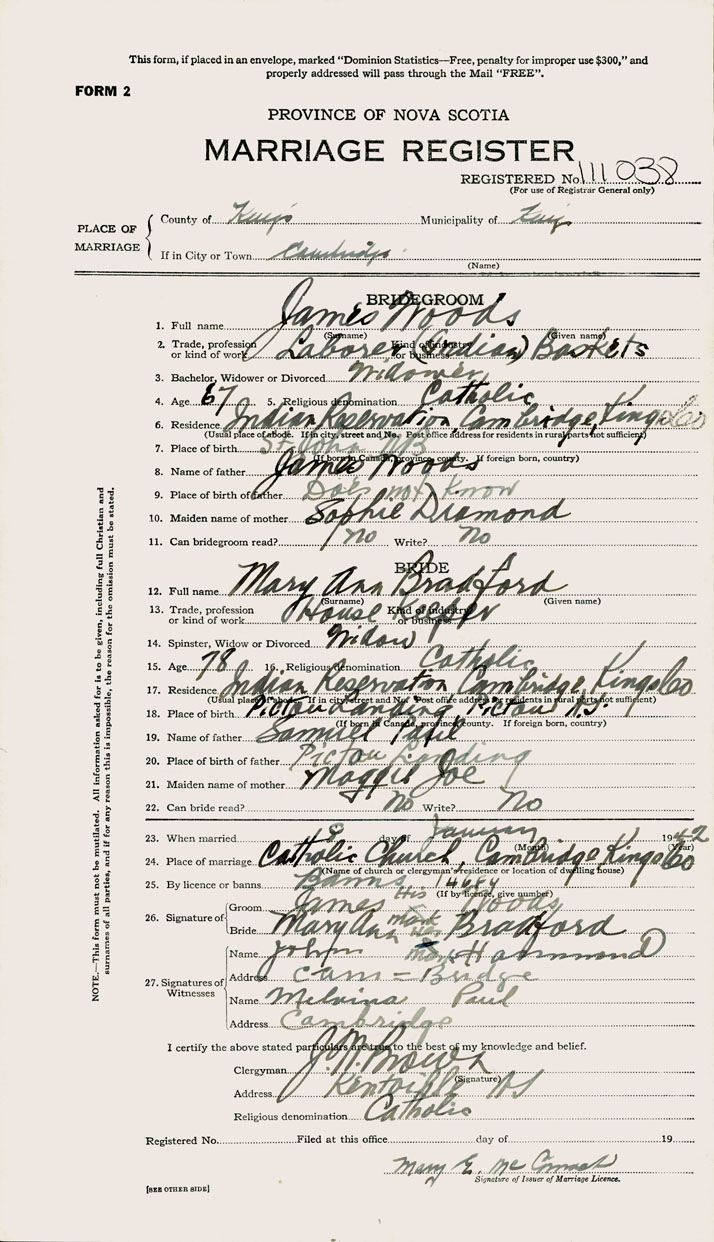 This form, if placed in an envelope, marked "Dominion Statistics—Free, penalty for improper use $300," and
properly addressed will pass through the Mail "FREE".
FORM 2
PROVINCE OF NOVA SCOTIA
MARRIAGE REGISTER
REGISTERED No. 111038
(For use of Registrar General only)
PLACE OF MARRIAGE
County of King's Municipality of Kings
If in City or Town Cambridge
(Name)
BRIDEGROOM
1. Full name James Woods
(Surname) (Given name)
2. Trade, profession or kind of work Laborer (Indian) Kind of industry or business Baskets
3. Bachelor, Widower or Divorced Widower
4. Age 67 5. Religious denomination Catholic
6. Residence Indian Reservation, Cambridge, Kings Co
(Usual place of abode. If in city, street and No. Post office address for residents in rural parts not sufficient)
7. Place of birth St John NB
(If born in Canada, province, county. If foreign born, country)
8. Name of father James Woods
9. Place of birth of father Does not Know
10. Maiden name of mother Sophie Diamond
11. Can bridegroom read? No Write? No
BRIDE
12. Full name Mary Ann Bradford
(Surname) (Given name)
13. Trade, profession or kind of work House Keeper Kind of industry or business
14. Spinster, Widow or Divorced Widow
15. Age 78 16. Religious denomination Catholic
17. Residence Indian Reservation, Cambridge, Kings Co
(Usual place of abode. If in city, street and No. Post office address for residents in rural parts not sufficient)
18. Place of birth Pictou Landing Pictou N.S
(If born in Canada, province, county. If foreign born, country)
19. Name of father Samuel Paul
20. Place of birth of father Pictou Landing
21. Maiden name of mother Maggie Joe
22. Can bride read? No Write? No
23. When married 8 day of January 1942
(Month) (Year)
24. Place of marriage Catholic Church, Cambridge, Kings Co
(Name of church or clergyman's residence or location of dwelling house)
25. By licence or banns Banns
(If by licence, give number)
26. Signature of
Groom James His mark Woods
Bride Mary Ann Her mark Bradford
27. Signatures of Witnesses
Name John Hammond
Address Cam = Bridge
Name Melvina Paul
Address Cambridge
I certify the above stated particulars are true to the best of my knowledge and belief.
Clergyman J. H. Brown
(Signature)
Address Kentville NS
Religious denomination Catholic
Registered No. Filed at this office day of 19
Mary E.
Signature of Issuer of Marriage Licence.
[SEE OTHER SIDE]
NOTE.—This form must not be mutilated. All information asked for is to be given, including full Christian and
surnames of all parties, and if for any reason this is impossible, the reason for the omission must be stated.